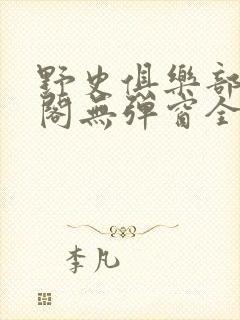 野史俱樂部
閣無彈窗全
李凡